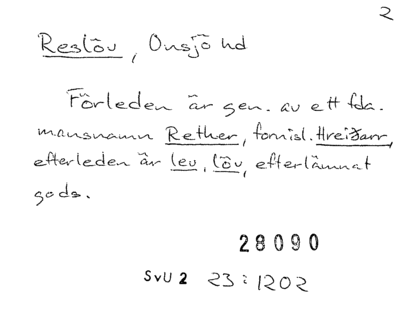 2
Reslöv, Onsjö hd
Förleden är gen. av ett fda.
mansnamn Rether, fornisl. Hreiðarr,
efterleden är lev, löv, efterlämnat
gods.
28090
SvU 2 23:1202